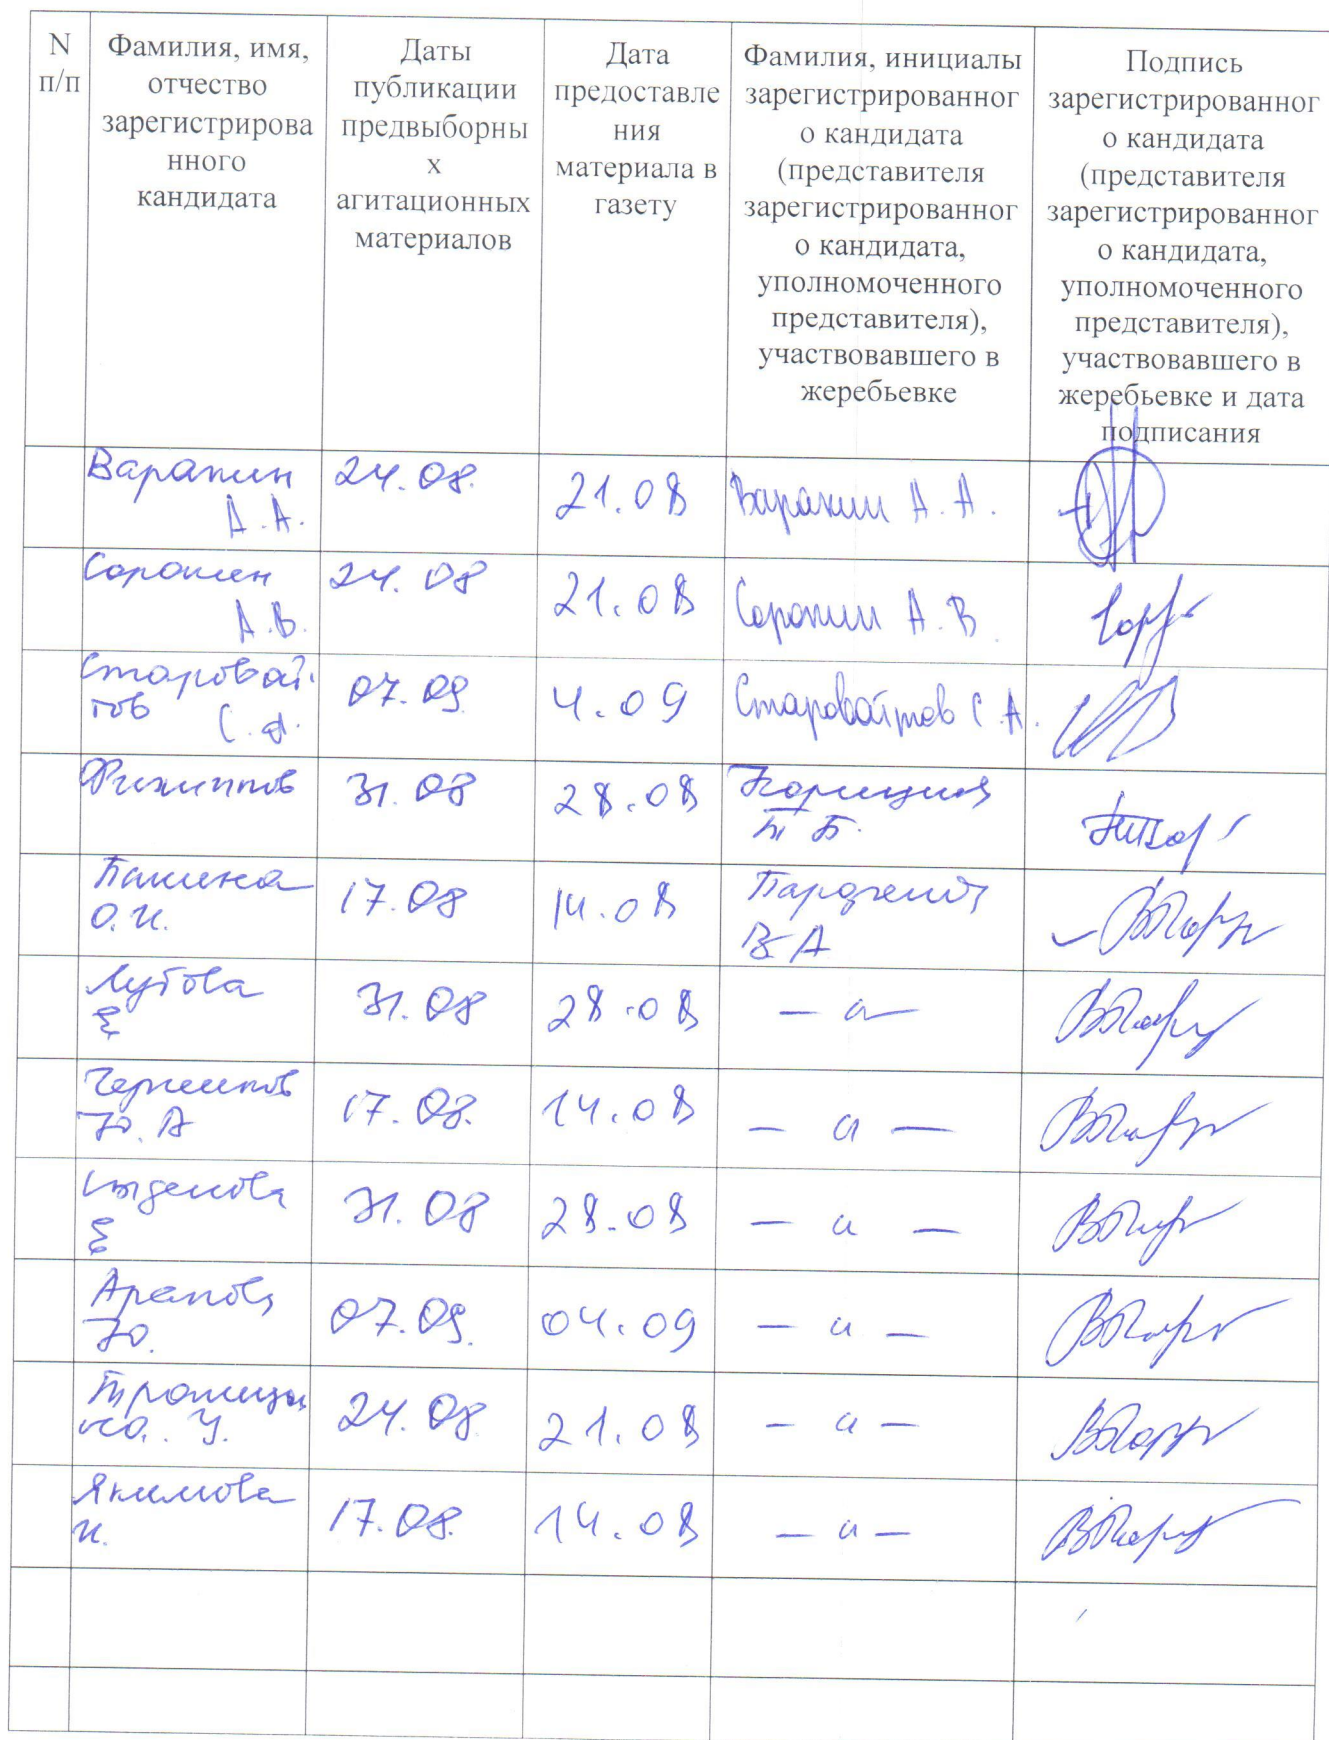 N
п/п
Фамилия, имя,
отчество
зарегистрирова
нного
кандидата
Даты
публикации
предвыборны
х
агитационных
материалов
Дата
предоставле
ния
материала в
газету
Фамилия, инициалы
зарегистрированног
о кандидата
(представителя
зарегистрированног
о кандидата,
уполномоченного
представителя),
участвовавшего в
жеребьевке
Подпись
зарегистрированног
о кандидата
(представителя
зарегистрированног
о кандидата,
уполномоченного
представителя),
участвовавшего в
жеребьевке и дата
подписания
Варакин
А.А.
24.08.
21.08
Варакин А.А.
Сорокин
А.В.
24.08
21.08
Сорокин А.В
Старовой
тов С.А.
07.09
4.09
Старовойтов С А.
Филиппов
31.08
28.08
Т Б.
О.И.
17.08
14.08
В А
Лутова
Е
31.08
28.08
— " —
Ю. А
17.08.
14.08
— " —
Е
31.08
28.08
— " —
Ю.
07.09.
04.09
— " —
У.
24.08
21.08
— " —
Якимова
И.
17.08.
14.08
— " —